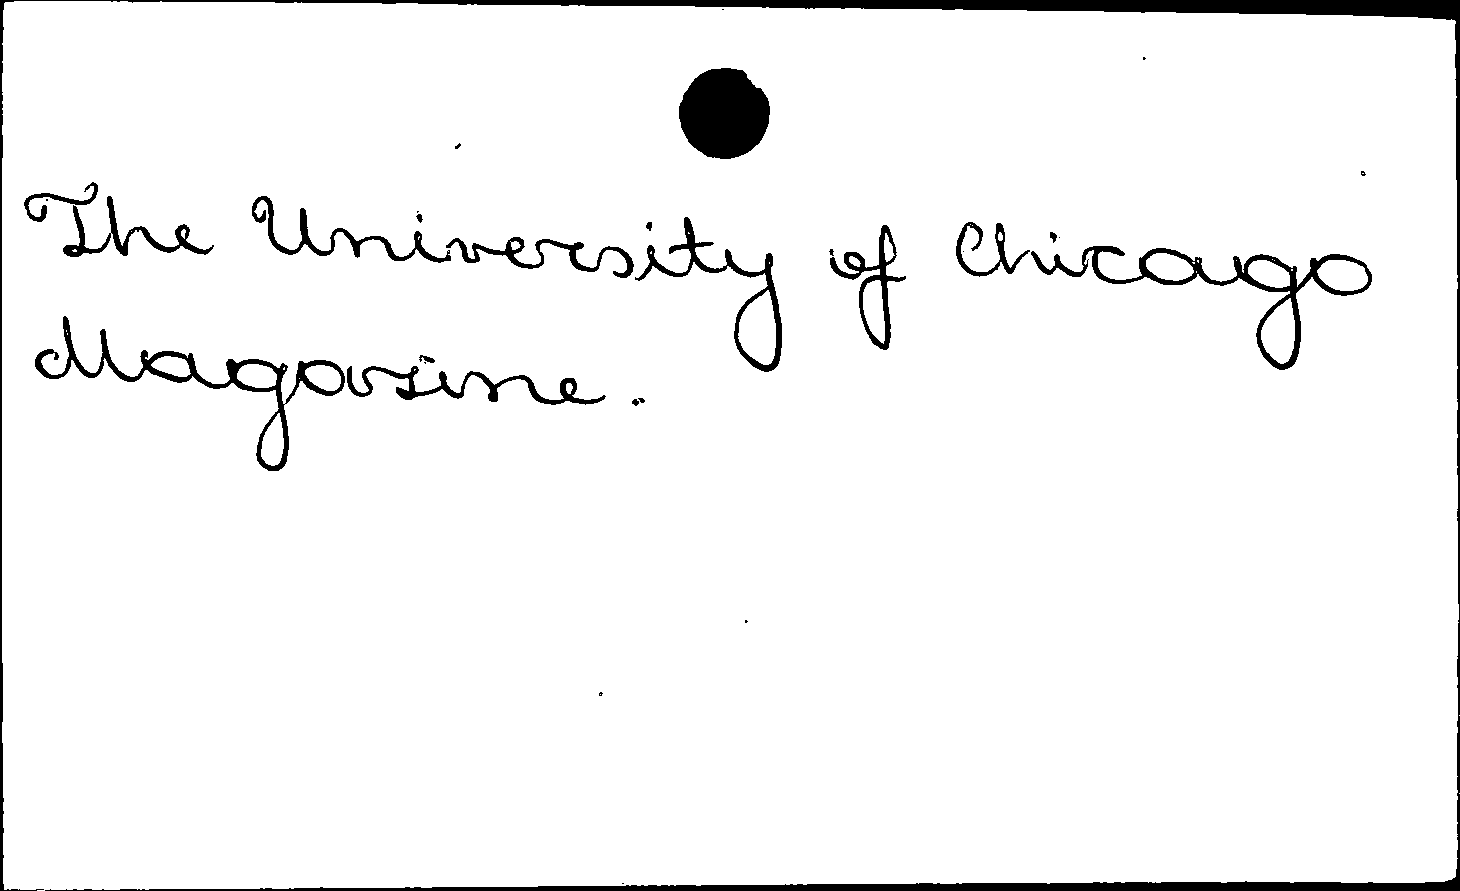 The University of Chicago
Magazine.